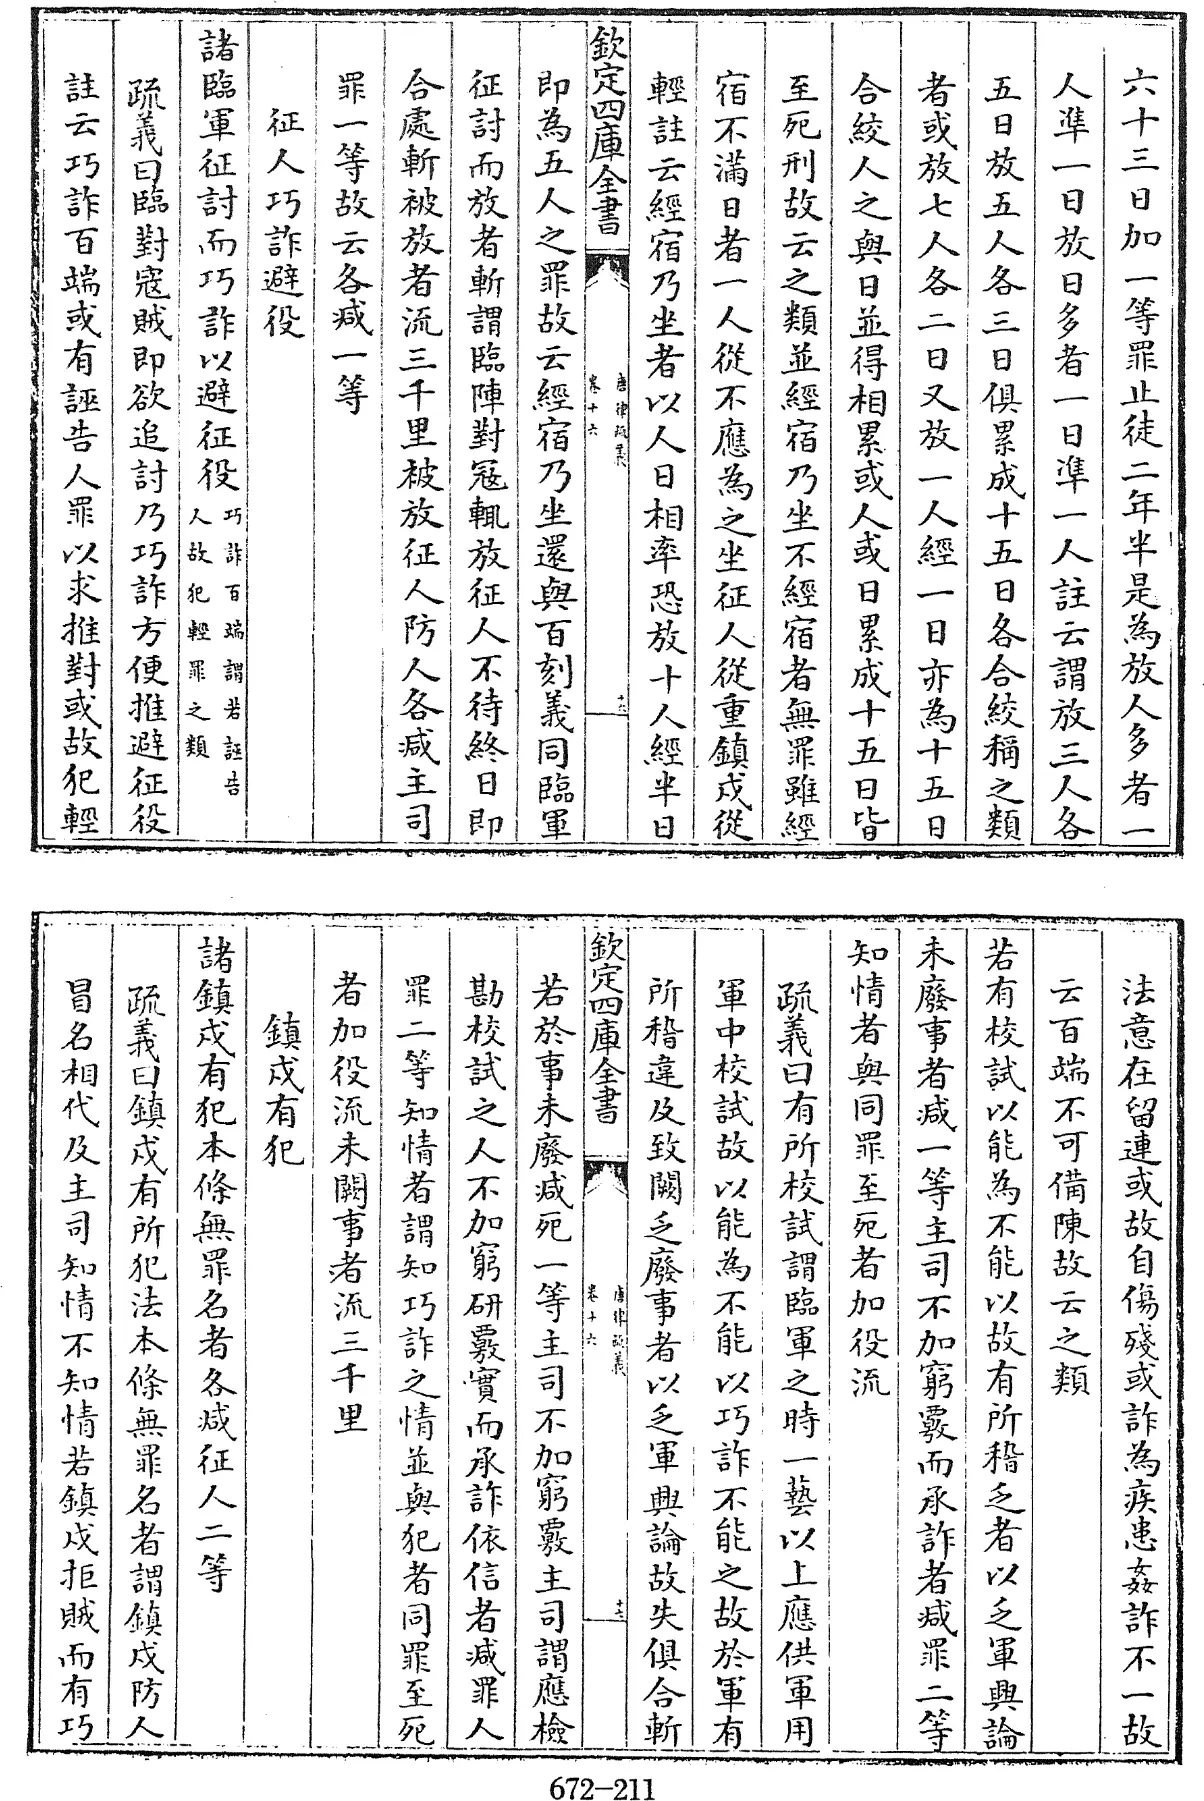 六十三日加一等罪止徒二年半是為放人多者一
人準一日放日多者一日準一人註云謂放三人各
五日放五人各三日俱累成十五日各合絞稱之類
者或放七人各二日又放一人經一日亦為十五日
合絞人之與日並得相累或人或日累成十五日皆
至死刑故云之類並經宿乃坐不經宿者無罪雖經
宿不滿日者一人從不應為之坐征人從重鎮戍從
輕註云經宿乃坐者以人日相率恐放十人經半日
欽定四庫全書
唐律疏義
卷十六
十六
即為五人之罪故云經宿乃坐還與百刻義同臨軍
征討而放者斬謂臨陣對寇輒放征人不待終日即
合處斬被放者流三千里被放征人防人各減主司
罪一等故云各減一等
征人巧詐避役
諸臨軍征討而巧詐以避征役
巧詐百端謂若誣告
人故犯輕罪之類
疏義曰臨對寇賊即欲追討乃巧詐方便推避征役
註云巧詐百端或有誣告人罪以求推對或故犯輕
法意在留連或故自傷殘或詐為疾患姦詐不一故
云百端不可備陳故云之類
若有校試以能為不能以故有所稽乏者以乏軍興論
未廢事者減一等主司不加窮覈而承詐者減罪二等
知情者與同罪至死者加役流
疏義曰有所校試謂臨軍之時一藝以上應供軍用
軍中校試故以能為不能以巧詐不能之故於軍有
所稽違及致闕乏廢事者以乏軍興論故失俱合斬
欽定四庫全書
唐律疏義
卷十六
十七
若於事未廢減死一等主司不加窮覈主司謂應檢
勘校試之人不加窮研覈實而承詐依信者減罪人
罪二等知情者謂知巧詐之情並與犯者同罪至死
者加役流未闕事者流三千里
鎮戍有犯
諸鎮戍有犯本條無罪名者各減征人二等
疏義曰鎮戍有所犯法本條無罪名者謂鎮戍防人
冒名相代及主司知情不知情若鎮戍拒賊而有巧
672-211